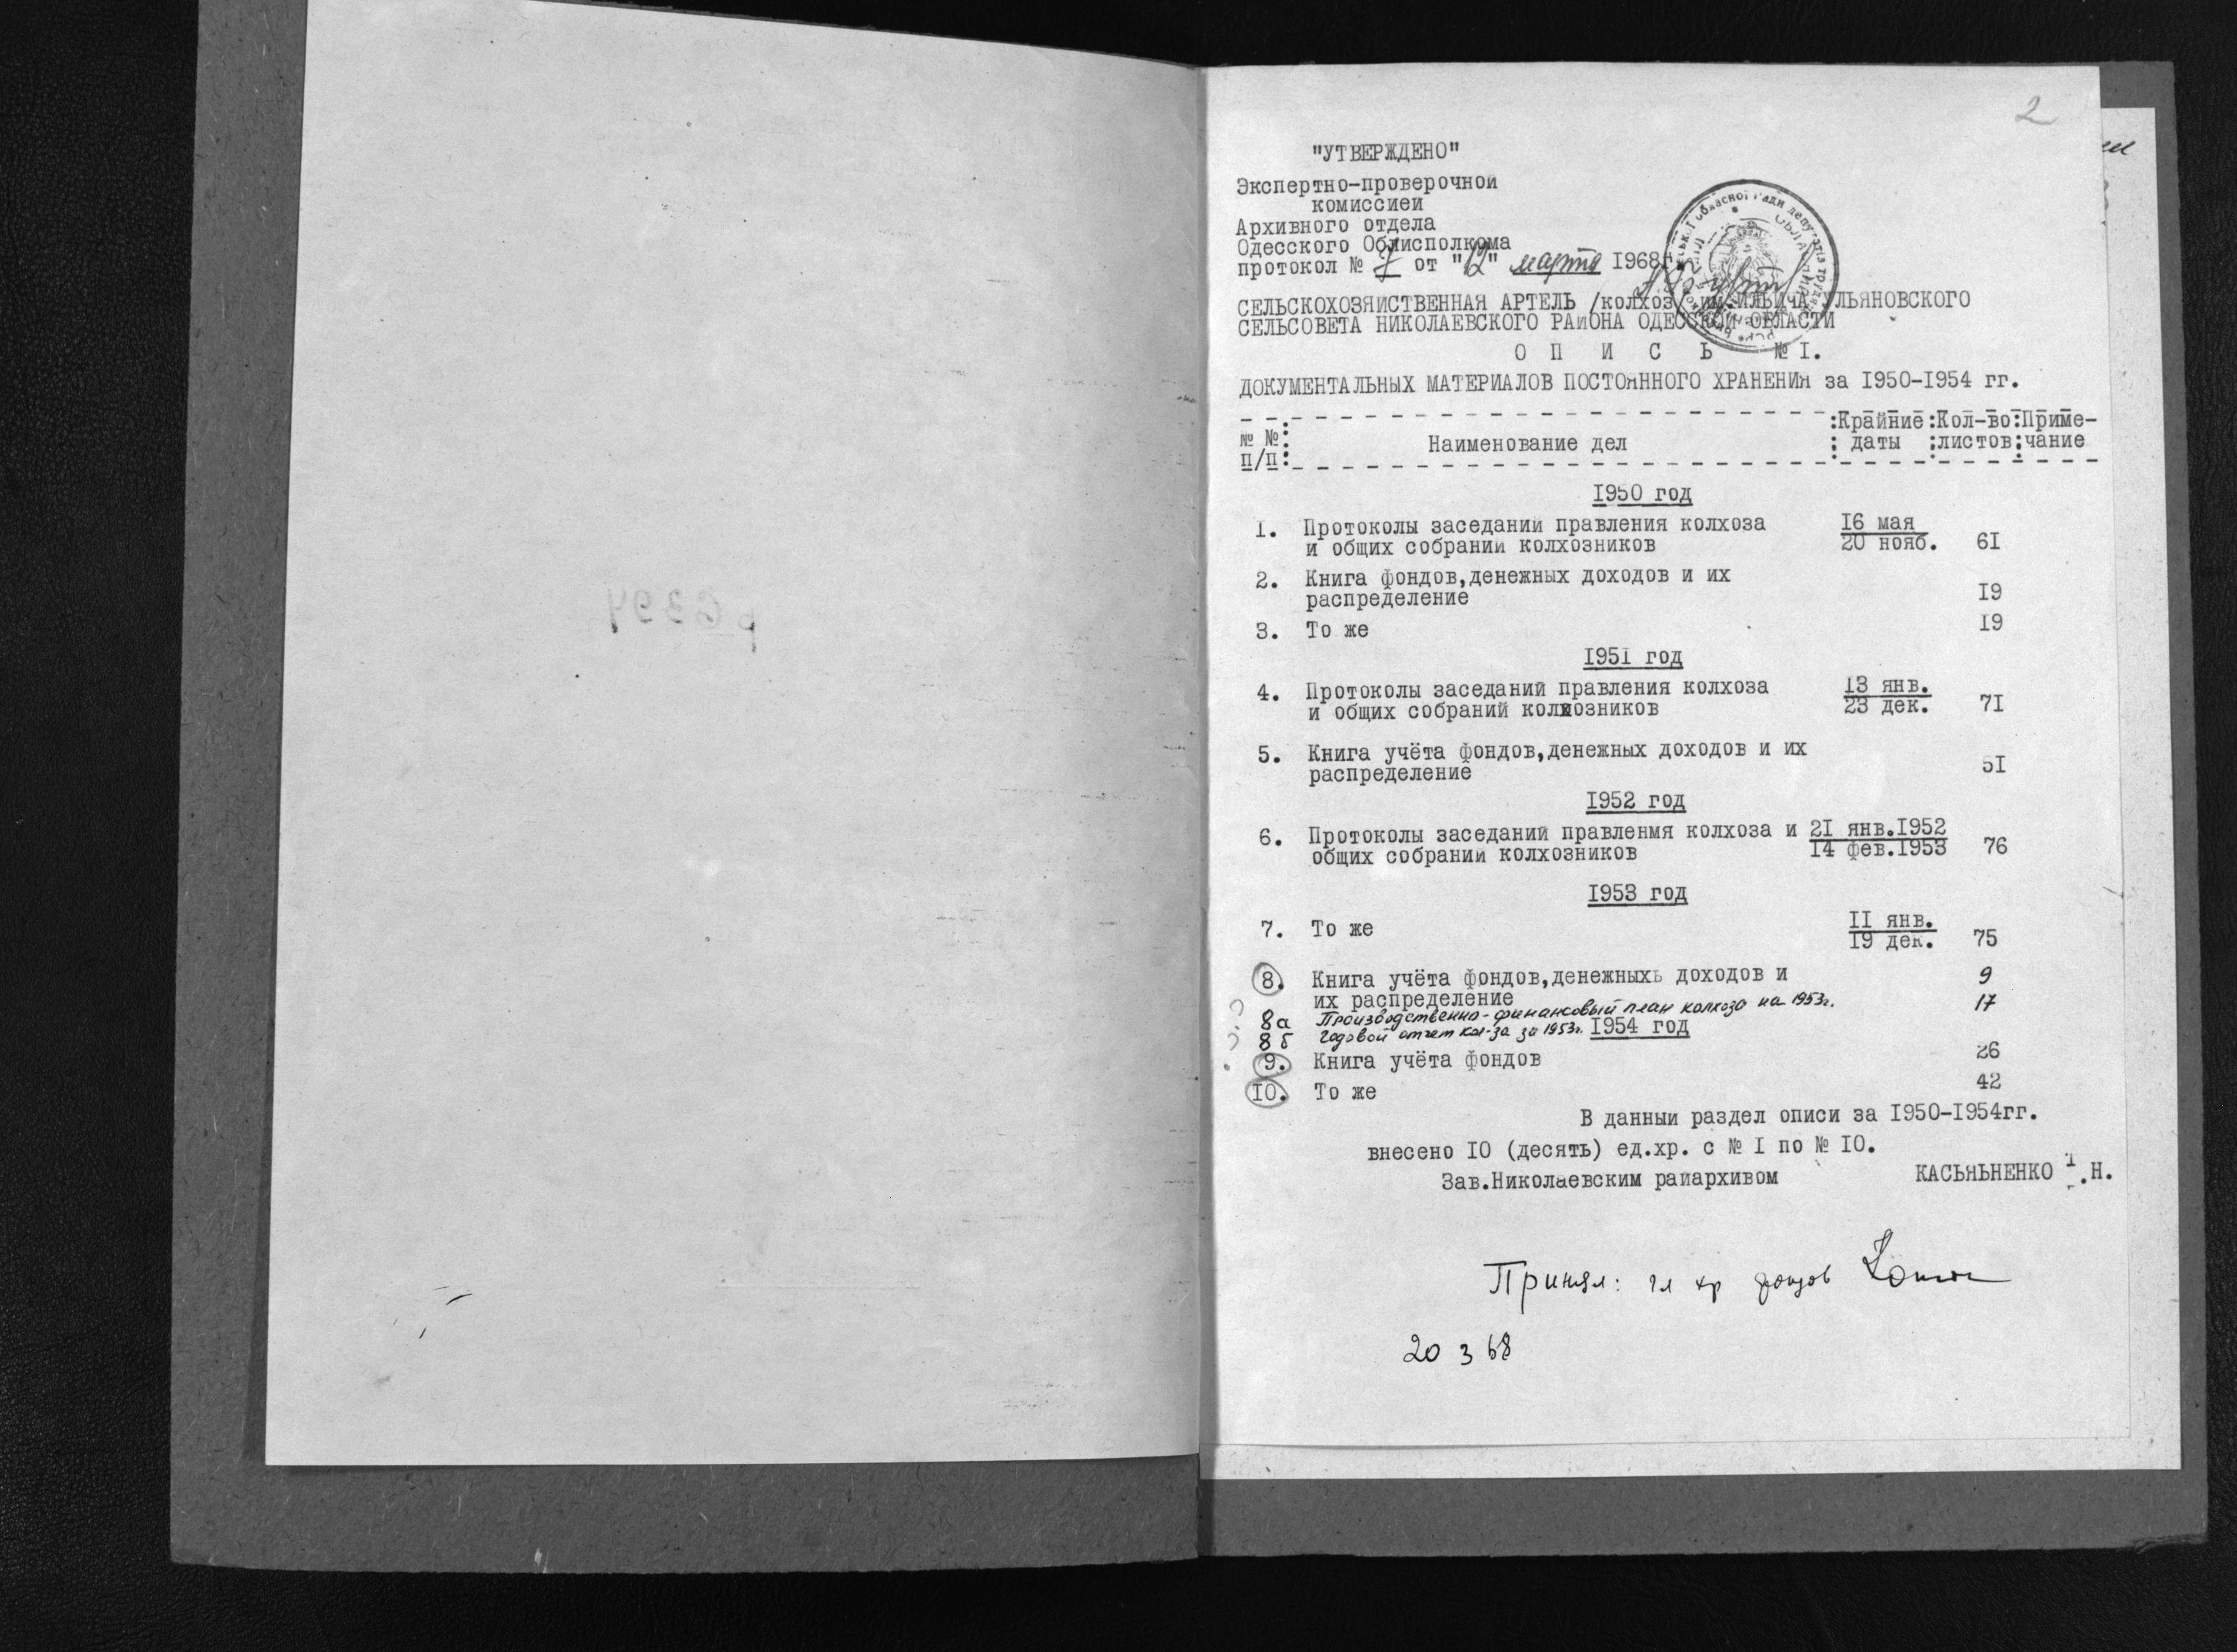 2
"УТВЕРЖДЕНО"
Экспертно-проверочной
комиссией
Архивного отдела
Одесского Облисполкома
протокол № 7 от "12" марта 1968г.
СЕЛЬСКОХОЗЯЙСТВЕННАЯ АРТЕЛЬ /колхоз/ им.ИЛЬИЧА УЛЬЯНОВСКОГО
СЕЛЬСОВЕТА НИКОЛАЕВСКОГО РАЙОНА ОДЕССКОЙ ОБЛАСТИ
О П И С Ь № I.
ДОКУМЕНТАЛЬНЫХ МАТЕРИАЛОВ ПОСТОЯННОГО ХРАНЕНИЯ за I950-I954 гг.
№ № п/п : Наименование дел : Крайние даты : Кол-во листов : Приме-чание
I950 год
I. Протоколы заседаний правления колхоза I6 мая
и общих собраний колхозников 20 нояб. 6I
2. Книга фондов,денежных доходов и их
распределение I9
3. То же I9
I95I год
4. Протоколы заседаний правления колхоза I3 янв.
и общих собраний колхозников 23 дек. 7I
5. Книга учёта фондов,денежных доходов и их
распределение 5I
I952 год
6. Протоколы заседаний правленмя колхоза и 2I янв.I952
общих собраний колхозников I4 фев.I953 76
I953 год
7. То же II янв.
I9 дек. 75
8. Книга учёта фондов,денежныхь доходов и 9
их распределение
8а Производственно-финансовый план колхоза на 1953г. 17
8б Годовой отчет кол-за за 1953г. I954 год
9. Книга учёта фондов 26
I0. То же 42
В данный раздел описи за I950-I954гг.
внесено I0 (десять) ед.хр. с № I по № I0.
Зав.Николаевским райархивом КАСЬЯЬНЕНКО .Н.
Принял: гл хр фондов
20 3 68